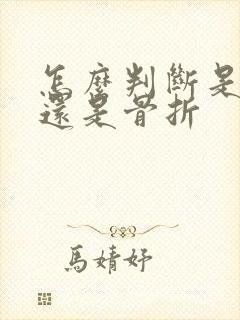 怎麼判斷是
還是骨折
馬婧妤